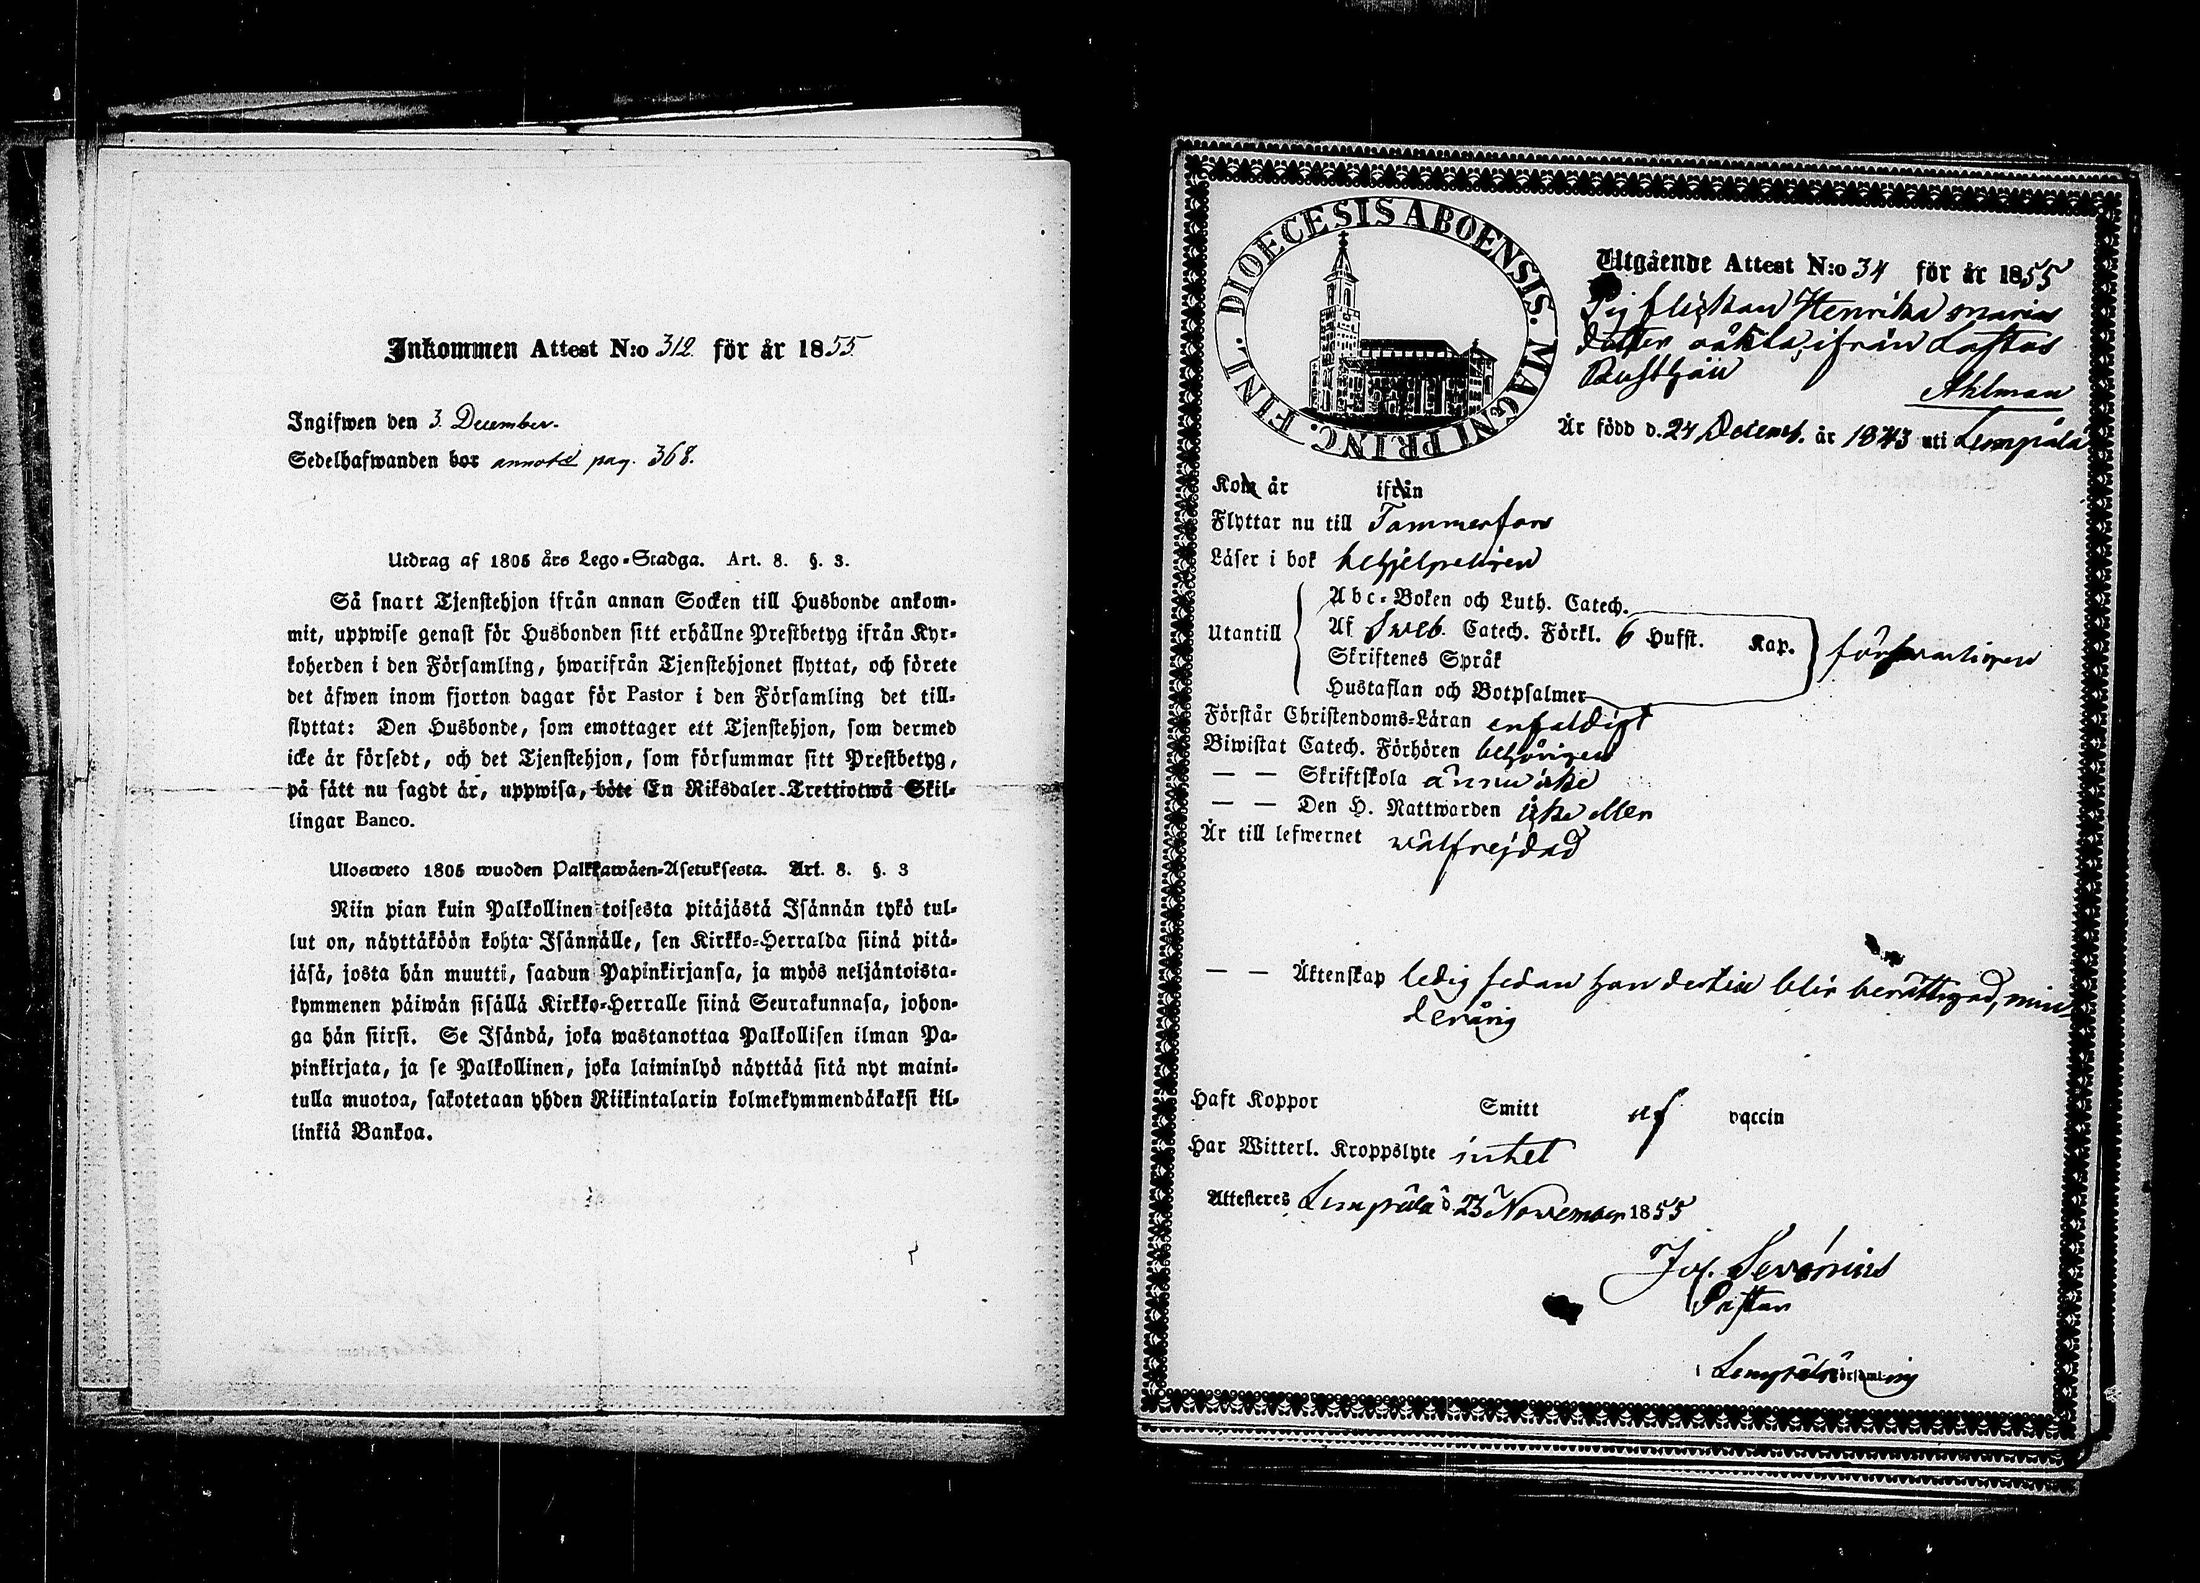 Inkommen Attest N:o 312 för år 1855
Ingifwen den 3 December.
Sedelhafwanden bor annote pag. 368.
Utdrag af 1805 års Lego-Stadga. Art. 8. §. 3.
Så snart Tjenstehjon ifrån annan Socken till Husbonde ankom-
mit, uppwise genast för Husbonden sitt erhållne Prestbetyg ifrån Kyr-
koherden i den Församling, hwarifrån Tjenstehjonet flyttat, och förete
det äfwen inom fjorton dagar för Pastor i den Församling det till-
flyttat: Den Husbonde, som emottager ett Tjenstehjon, som dermed
icke är försedt, och det Tjenstehjon, som försummar sitt Prestbetyg,
på sätt nu sagdt är, uppwisa, böte En Riksdaler Trettiotwå Skil-
lingar Banco.
Ulosweto 1805 wuoden Palkkawäen-Asetuksesta. Art. 8. §. 3
Niin pian kuin Palkollinen toisesta pitäjästä Isännän tykö tul-
lut on, näyttäköön kohta Isännälle, sen Kirkko-Herralda siinä pitä-
jäsä, josta hän muutti, saadun Papinkirjansa, ja myös neljäntoista-
kymmenen päiwän sisällä Kirkko-Herralle siinä Seurakunnasa, johon-
ga hän siirsi. Se Isändä, joka wastanottaa Palkollisen ilman Pa-
pinkirjata, ja se Palkollinen, joka laiminlyö näyttää sitä nyt maini-
tulla muotoa, sakotetaan yhden Riikintalarin kolmekymmendäkaksi kil-
linkiä Bankoa.
FINL. DIOECESIS ABOENSIS. MAGNI PRINC.
Utgående Attest N:o 34 för år 1855
Pigflickan Henrika Maria
dotter ifrån Laftas
Rusthåll
Ahlman
Är född d. 24 Decemb. år 1843 uti Lempälä
Kom år ifrån
Flyttar nu till Tammerfors
Läser i bok behjelpeligen
Utantill
Abc-Boken och Luth. Catech.
Af Sweb. Catech. Förkl. 6 Hufst. Kap.
Skriftenes Språk
Hustaflan och Botpsalmer
försvarligen
Förstår Christendoms-Läran enfaldigt
Biwistat Catech. Förhören behörigen
— — Skriftskola ännu icke
— — Den H. Nattwarden icke eller
Är till lefwernet wälfrejdad
— — Äktenskap ledig sedan hon dertill blir berättigad, min-
derårig
Haft Koppor Smitt af vaccin
Har Witterl. Kroppslyte intet
Attesteres Lempälä d. 23 November 1855
Jos. Severinius
Pastor
i Lempälä församling